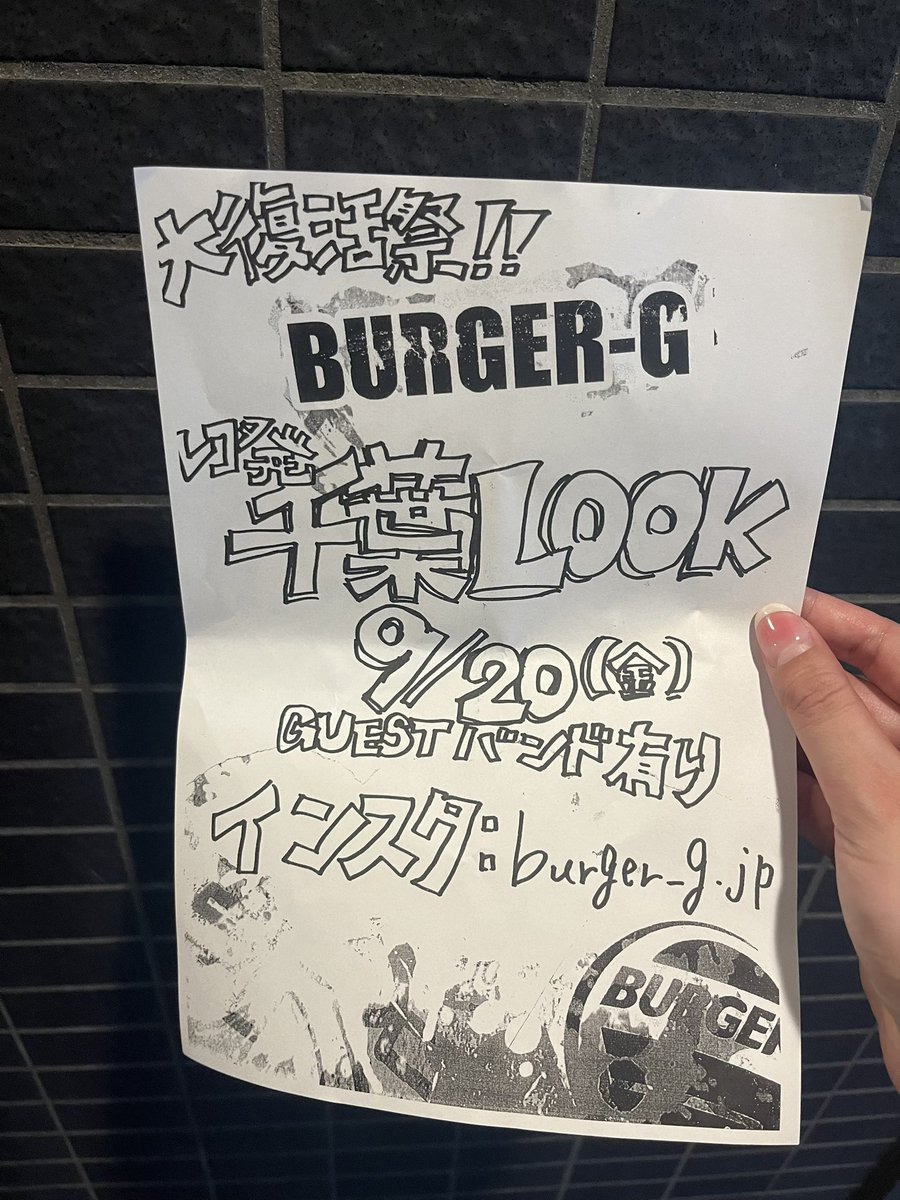 大復活祭!!
BURGER-G
千葉LOOK
9/20(金)
GUESTバンド有り
インスタ:burger_g.jp
BURGER